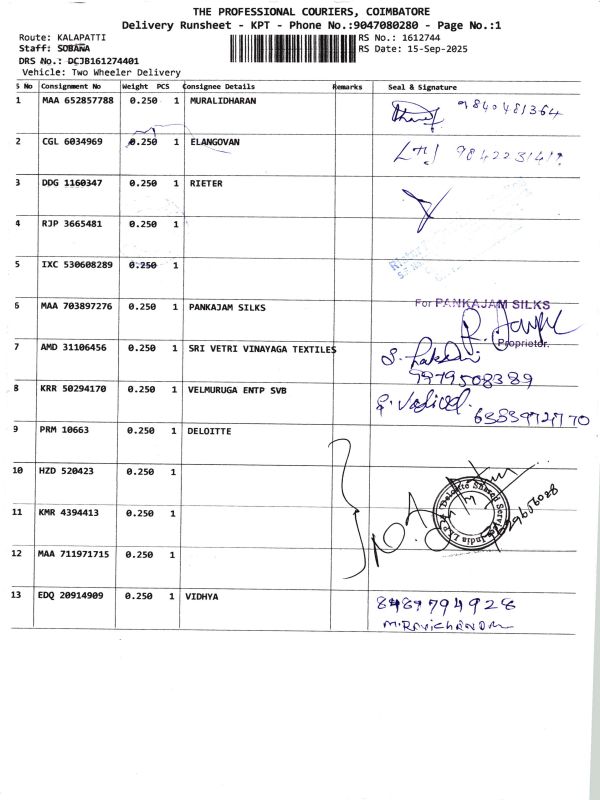 THE PROFESSIONAL COURIERS, COIMBATORE
Delivery Runsheet - KPT - Phone No.:9047080280 - Page No.:1
Route: KALAPATTI
RS No.: 1612744
Staff: SOBANA
RS Date: 15-Sep-2025
DRS No.: DCJB161274401
Vehicle: Two Wheeler Delivery
S No Consignment No Weight PCS Consignee Details Remarks Seal & Signature
1 MAA 652857788 0.250 1 MURALIDHARAN 9840481364
2 CGL 6034969 0.250 1 ELANGOVAN
3 DDG 1160347 0.250 1 RIETER
4 RJP 3665481 0.250 1
5 IXC 530608289 0.250 1
6 MAA 703897276 0.250 1 PANKAJAM SILKS
For PANKAJAM SILKS
Proprietor.
7 AMD 31106456 0.250 1 SRI VETRI VINAYAGA TEXTILES
9979508389
8 KRR 50294170 0.250 1 VELMURUGA ENTP SVB
9 PRM 10663 0.250 1 DELOITTE
10 HZD 520423 0.250 1
11 KMR 4394413 0.250 1
12 MAA 711971715 0.250 1
13 EDQ 20914909 0.250 1 VIDHYA
8489794928
M.RAVICHANDR